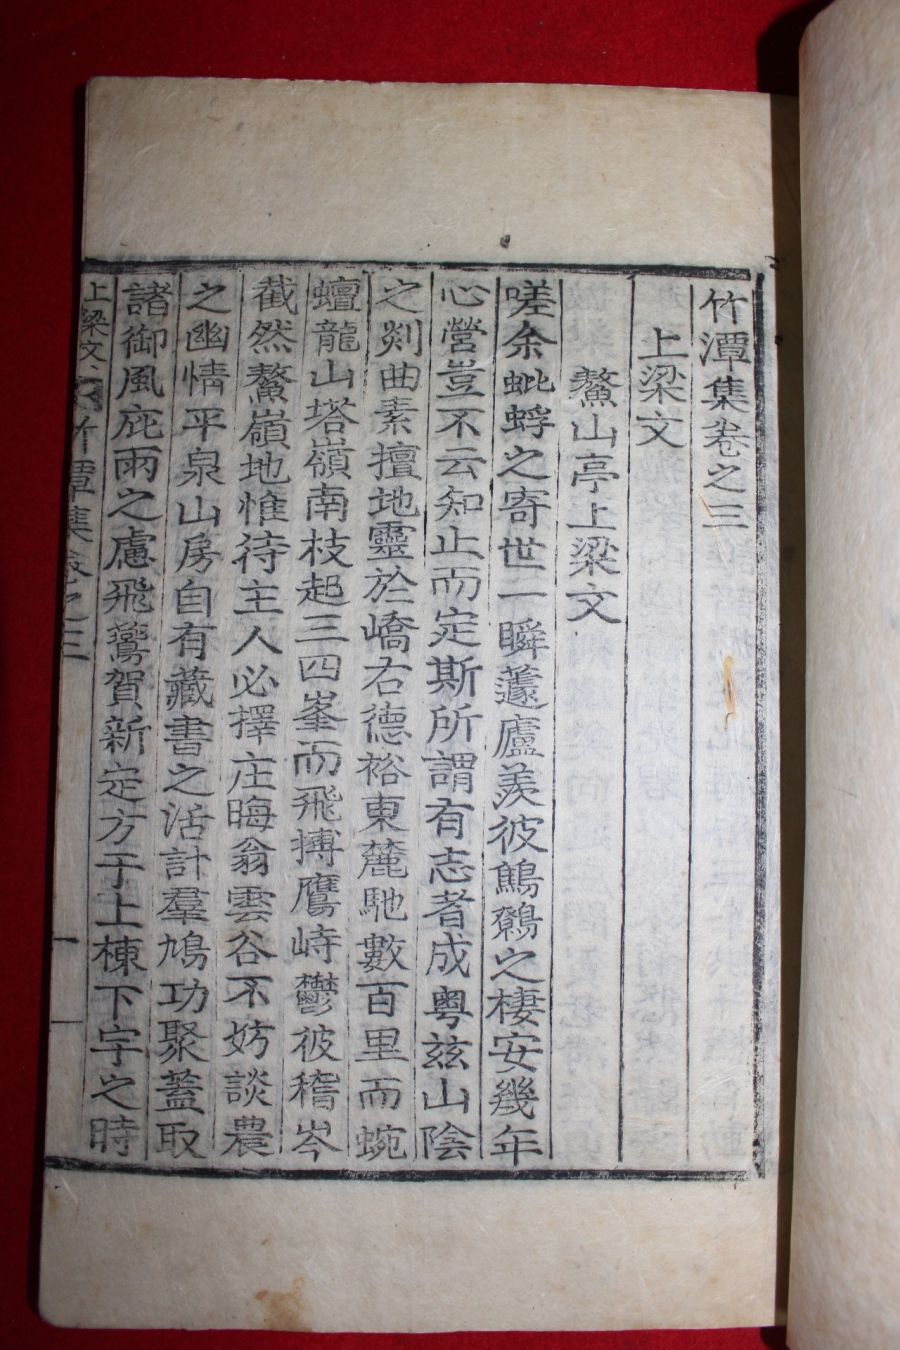 竹潭集卷之三
上梁文
鰲山亭上梁文
嗟余蚍蜉之寄世一瞬蘧廬羨彼鷦鷯之棲安幾年
心營豈不云知止而定斯所謂有志者成粤玆山陰
之剡曲素擅地靈於嶠右德裕東麓馳數百里而蜿
蟺龍山塔嶺南枝起三四峯而飛搏鷹峙鬱彼穧岑
截然鰲嶺地惟待主人必擇庄晦翁雲谷不妨談農
之幽情平泉山房自有藏書之活計羣鳩功聚蓋取
諸御風庇雨之慮飛鶱賀新定方于上棟下宇之時
上梁文 竹潭集卷之三 一